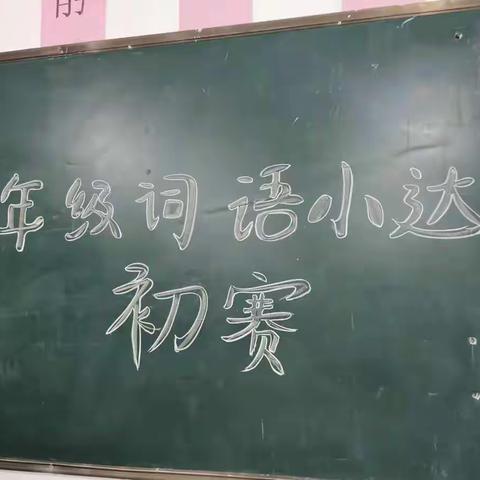 前
年级词语小达
初赛